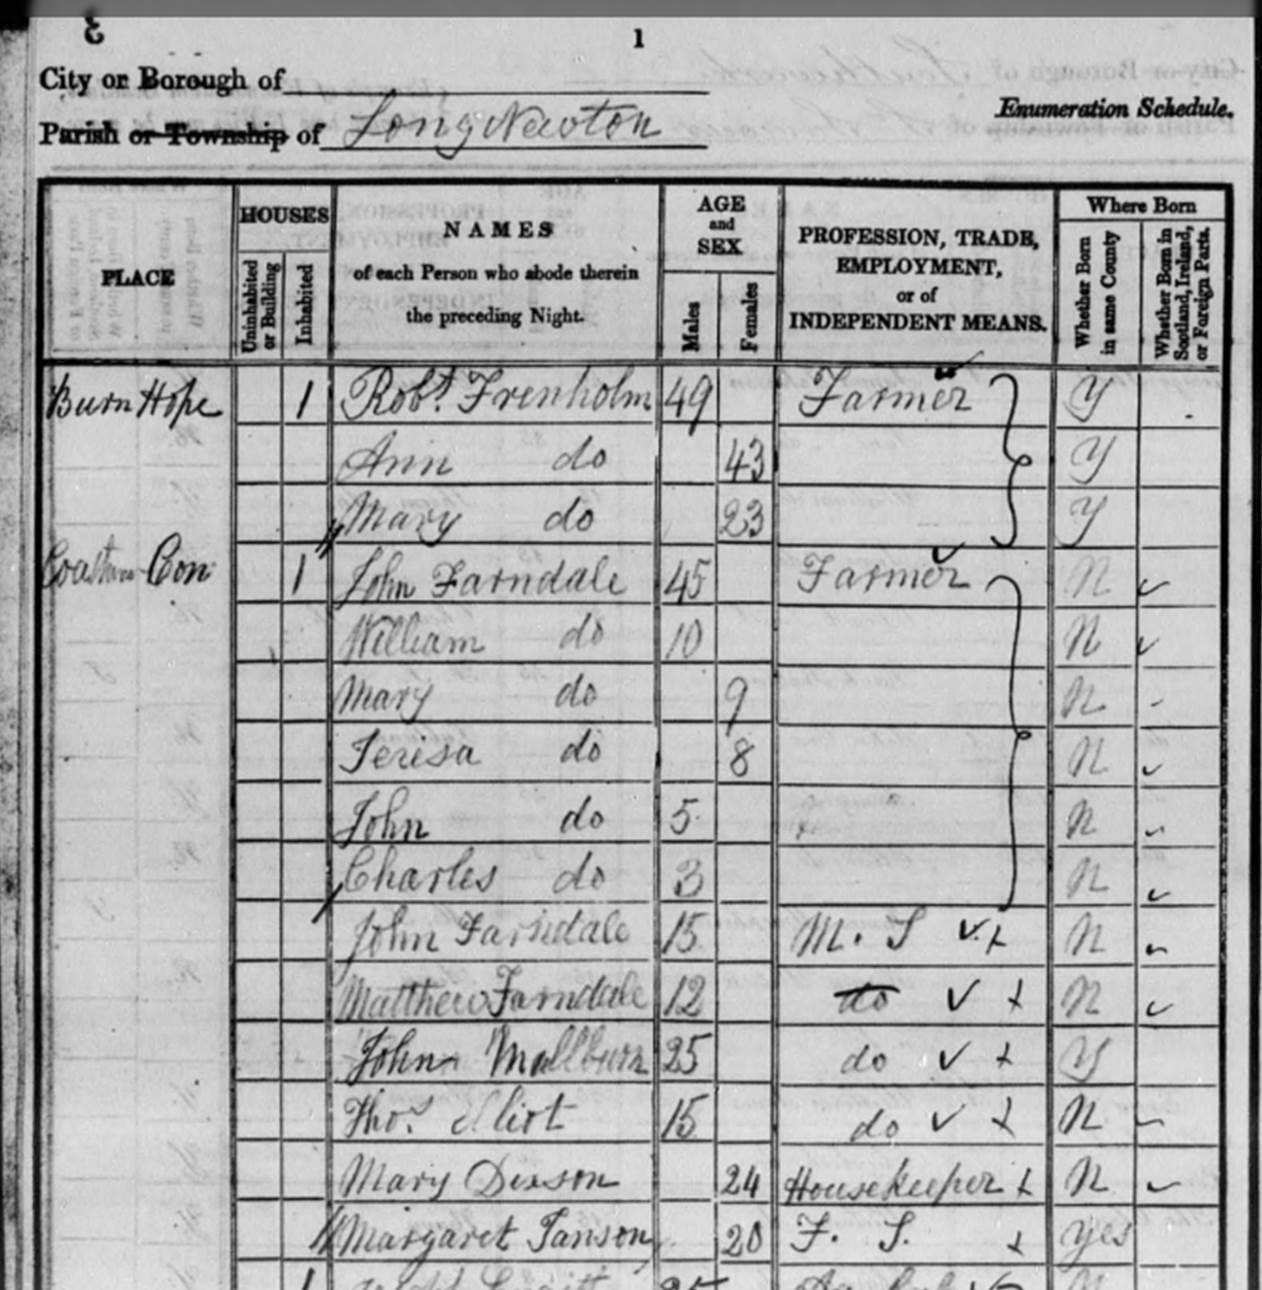 1
City or Borough of
Parish or Township of Long Newton
Enumeration Schedule.
PLACE
HOUSES
Uninhabited or Building
Inhabited
NAMES
of each Person who abode therein
the preceding Night.
AGE
and
SEX
Males
Females
PROFESSION, TRADE,
EMPLOYMENT,
or of
INDEPENDENT MEANS.
Where Born
Whether Born in same County
Whether Born in Scotland, Ireland, or Foreign Parts.
Burn Hope 1 Robt. Trenholm 49 Farmer Y
Ann do 43 Y
Mary do 23 Y
1 John Farndale 45 Farmer N
William do 10 N
Mary do 9 N
Teresa do 8 N
John do 5 N
Charles do 3 N
John Farndale 15 M. S N
Matthew Farndale 12 do N
John 25 do Y
Thos. Eliot 15 do N
Mary Dixson 24 Housekeeper N
Margaret Janson 20 F. S. yes